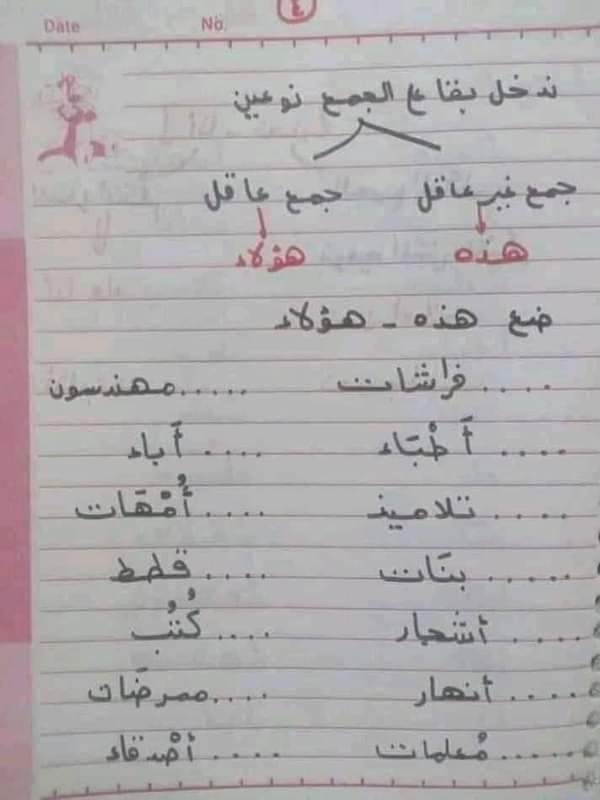 Date No. ٤
ندخل بقاع الجمع نوعين
جمع غير عاقل جمع عاقل
هذه هؤلاء
ضع هذه - هؤلاء
.... فراشات ..... مهندسون
.... أَطْبَاء .... أَباء
.... تلاميذ .... أُمْهَات
..... بنَات .... قطط
.... أشجار .... كُتُب
.... أنهار .... ممرضَات
..... مُعلمات .... أصْدقاء